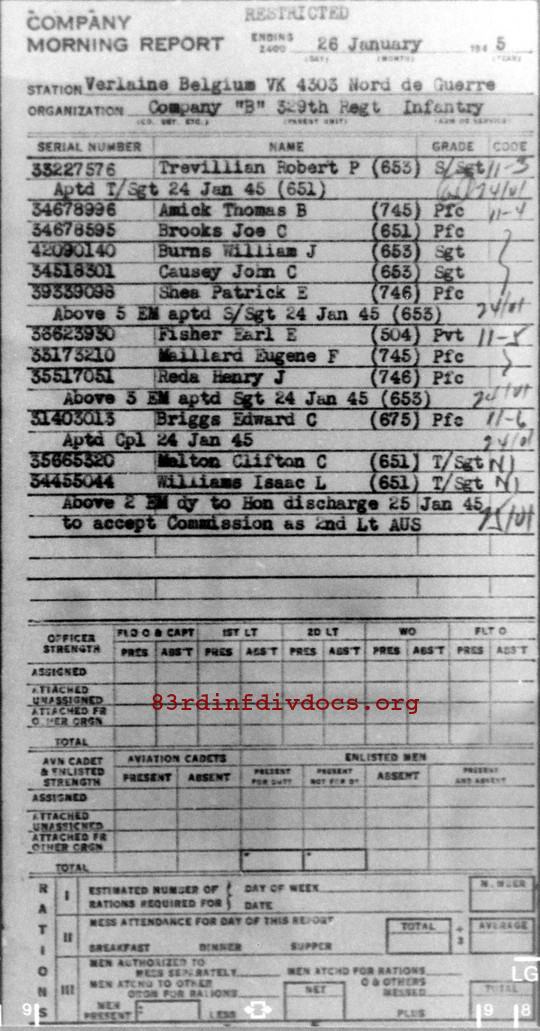 RESTRICTED
COMPANY
MORNING REPORT ENDING 2400 26 January 194 5
(DAY) (MONTH) (YEAR)
STATION Verlaine Belgium VK 4303 Nord de Guerre
ORGANIZATION Company "B" 329th Regt Infantry
(CO. DET. ETC.) (PARENT UNIT) (ARM OR SERVICE)
SERIAL NUMBER NAME GRADE CODE
33227576 Trevillian Robert P (653) S/Sgt 11-3
Aptd T/Sgt 24 Jan 45 (651) 24/01
34678996 Amick Thomas B (745) Pfc 11-4
34678595 Brooks Joe C (651) Pfc
42090140 Burns William J (653) Sgt
34518301 Causey John C (653) Sgt
39339098 Shea Patrick E (746) Pfc
Above 5 EM aptd S/Sgt 24 Jan 45 (653) 24/01
36623930 Fisher Earl E (504) Pvt 11-5
35173210 Maillard Eugene F (745) Pfc
35517051 Reda Henry J (746) Pfc
Above 3 EM aptd Sgt 24 Jan 45 (653) 24/01
31403013 Briggs Edward C (675) Pfc 11-6
Aptd Cpl 24 Jan 45 24/01
35665320 Melton Clifton C (651) T/Sgt N1
34455044 Williams Isaac L (651) T/Sgt N1
Above 2 EM dy to Hon discharge 25 Jan 45
to accept Commission as 2nd Lt AUS 25/01
OFFICER STRENGTH FLD O & CAPT 1ST LT 2D LT WO FLT O
PRES ABS'T PRES ABS'T PRES ABS'T PRES ABS'T PRES ABS'T
ASSIGNED
ATTACHED UNASSIGNED
ATTACHED FR OTHER ORGN
83rdinfdivdocs.org
TOTAL
AVN CADET & ENLISTED STRENGTH AVIATION CADETS ENLISTED MEN
PRESENT ABSENT PRESENT FOR DUTY PRESENT NOT FOR DY ABSENT PRESENT AND ABSENT
ASSIGNED
ATTACHED UNASSIGNED
ATTACHED FR OTHER ORGN
TOTAL
RATIONS
I ESTIMATED NUMBER OF RATIONS REQUIRED FOR DAY OF WEEK NUMBER
DATE
II MESS ATTENDANCE FOR DAY OF THIS REPORT TOTAL ÷ 3 AVERAGE
BREAKFAST DINNER SUPPER
III MEN AUTHORIZED TO MESS SEPARATELY MEN ATCHD FOR RATIONS
MEN ATCHD TO OTHER ORGN FOR RATIONS NET O & OTHERS MESSED TOTAL
MEN PRESENT LESS PLUS
LG
9 9 8